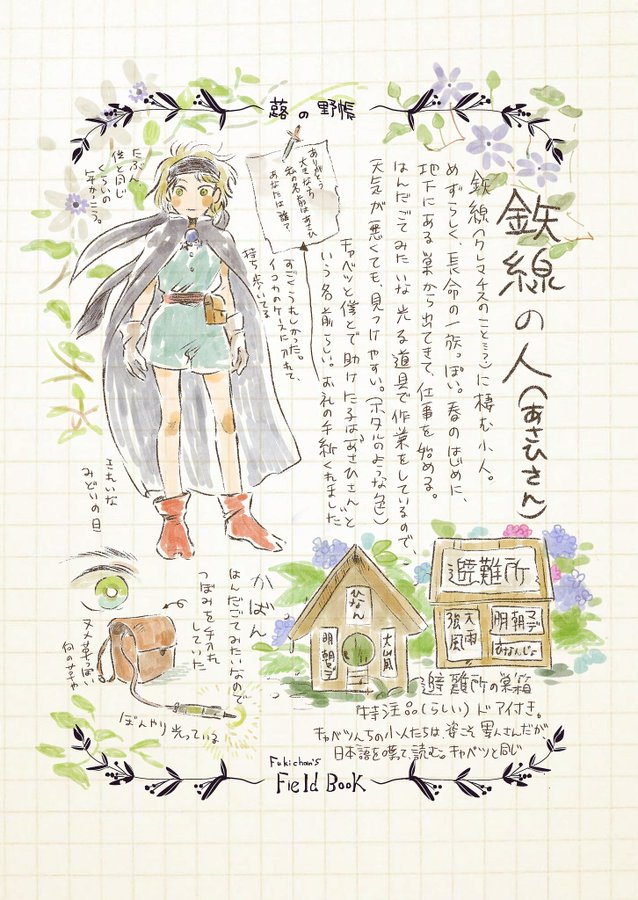 蕗の野帳
鉄線の人(あさひさん)
鉄線(クレマチスのこと…?)に棲む小人。
めずらしく、長命の一族っぽい。春のはじめに、
地下にある巣から出てきて、仕事を始める。
はんだごてみたいな光る道具で作業をしているので、
天気が悪くても、見つけやすい。(ホタルのような色)
キャベツと僕とで助けた子は“あさひさん”と
いう名前らしい。お礼の手紙くれました
ありがとう
大きなたち
私の名前はあさひ
あなたは誰?
すごくうれしかった。
イコカのケースに入れて、
持ち歩いてる
たぶん、
僕と同じ
くらいの
年かっこう。
きれいな
みどりの目
かばん
はんだごてみたいなので
つぼみを手入れ
していた
ヌメ革っぽい
何かの革
ぼんやり光っている
ひなん
明朝まで
大山風
避難所
大雨
強風
明朝まデ
ひなんじょ
避難所の巣箱
特注品(らしい)ドアイ付き。
キャベツんちの小人たちは、姿こそ異人さんだが
日本語を喋って、読む。キャベツと同じ
Fukichan's
Field Book